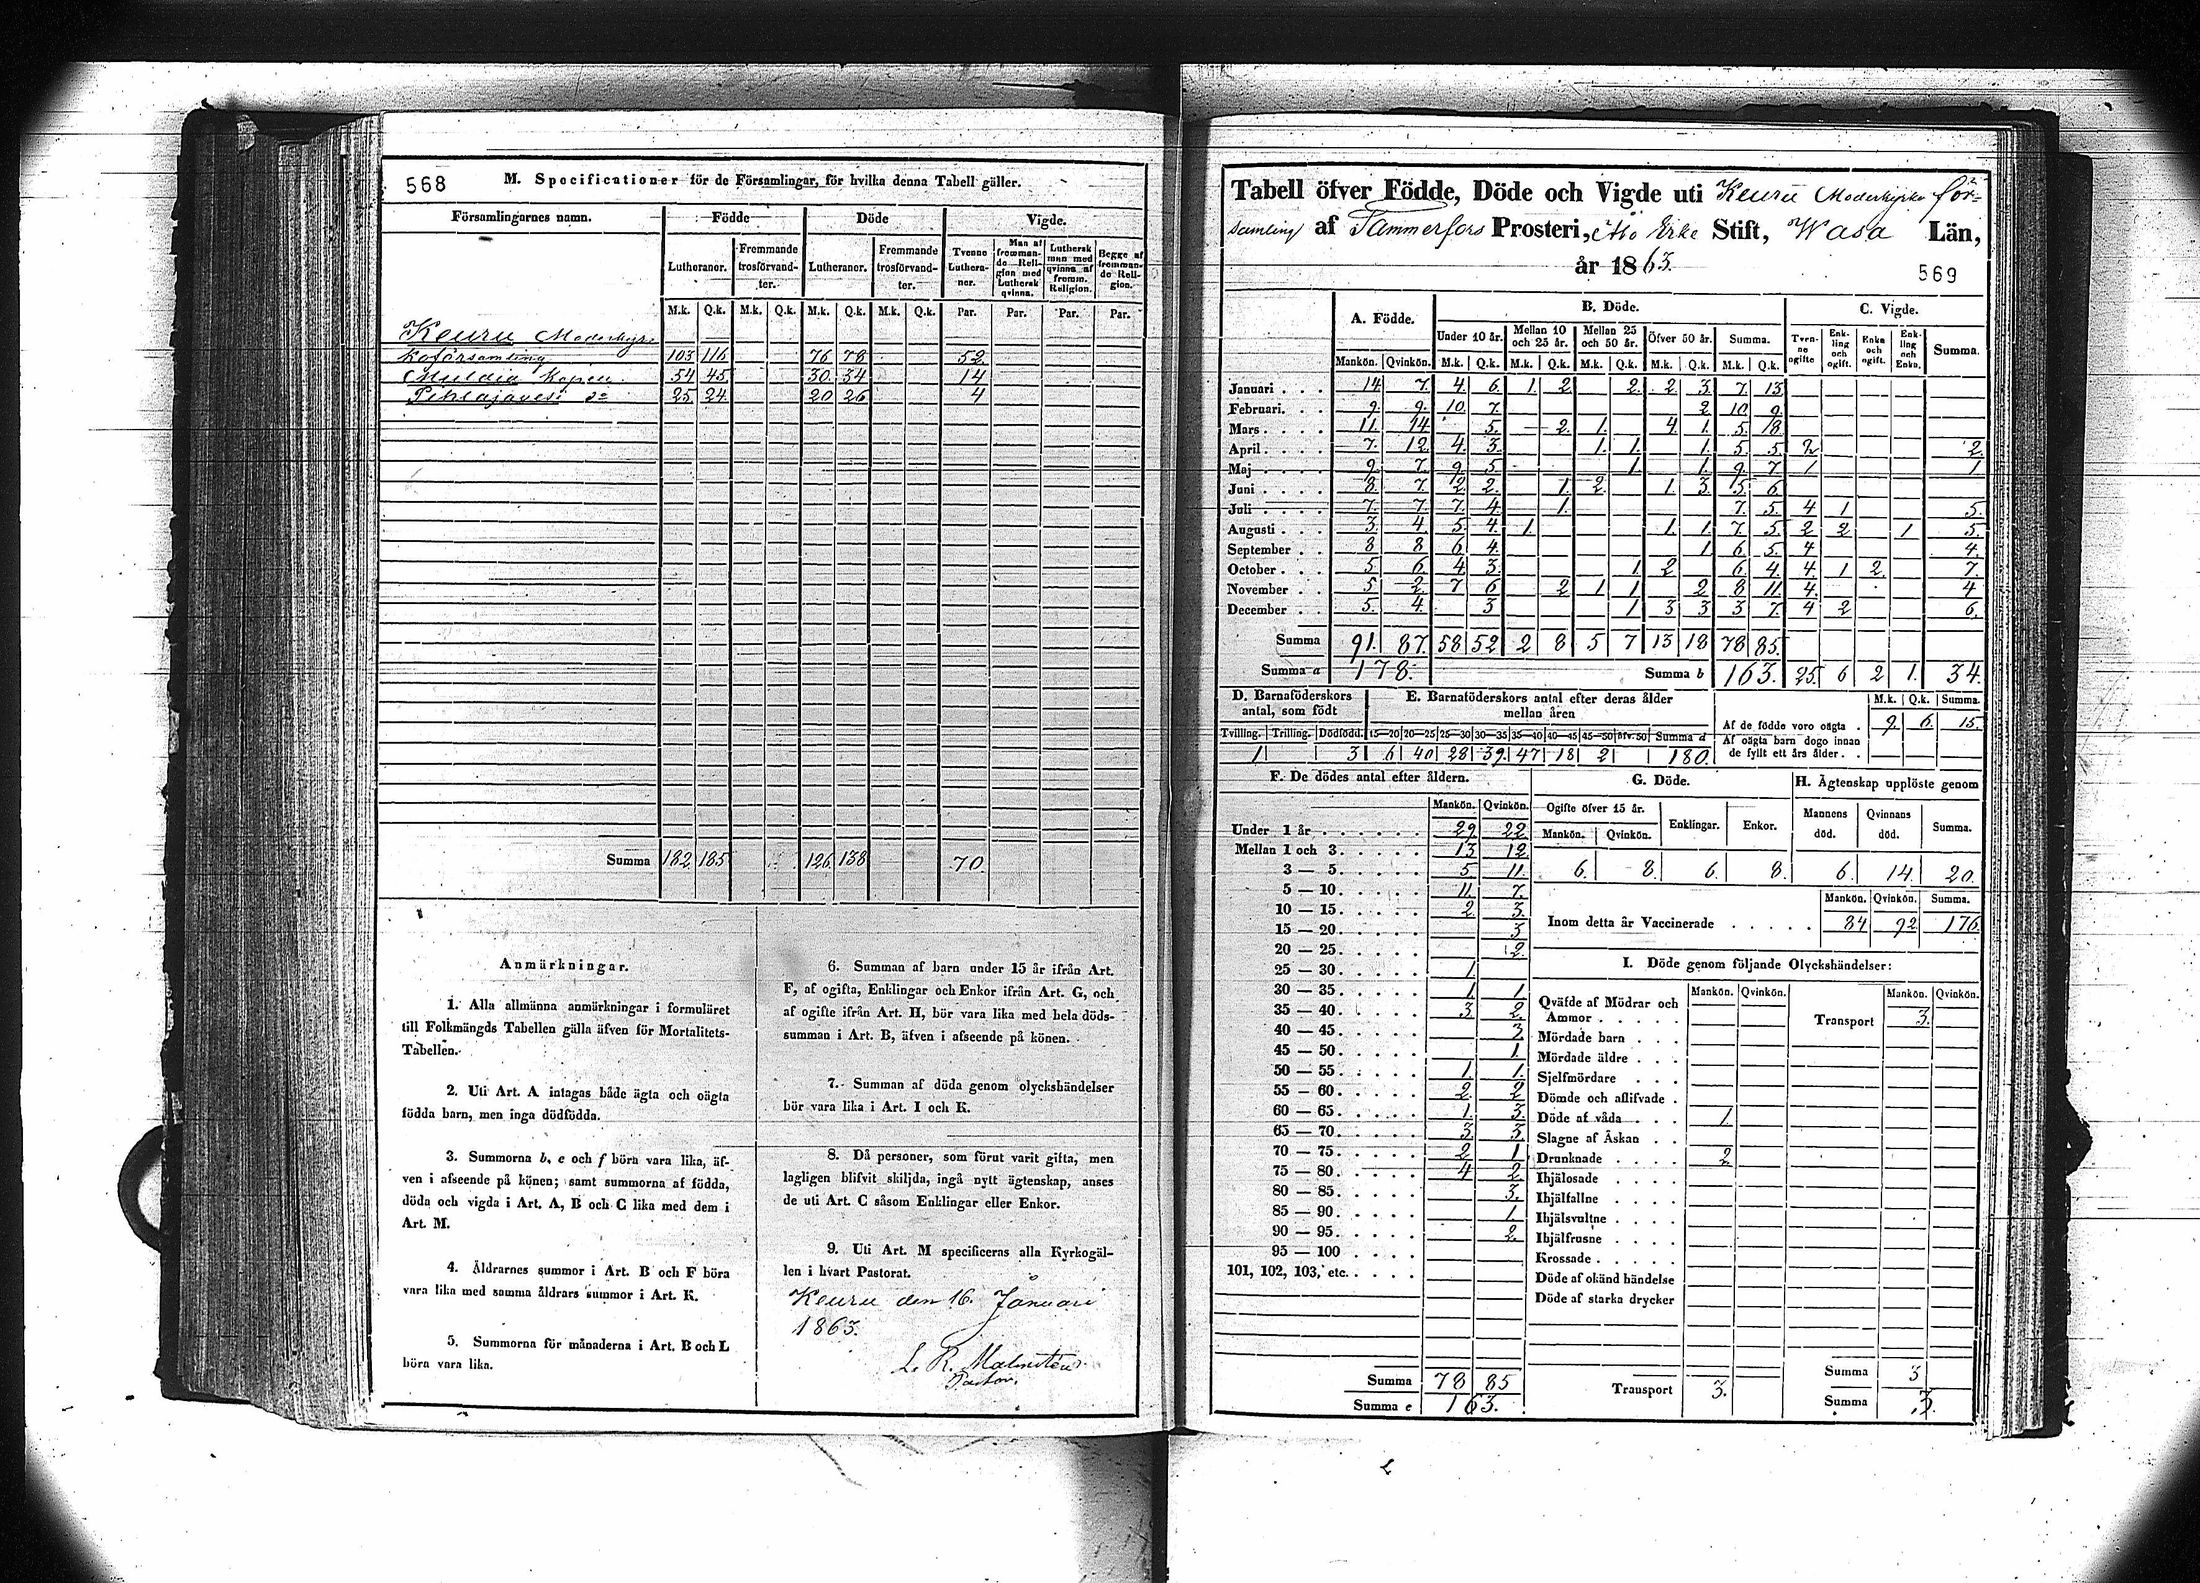 568
M. Specificationer för de Församlingar, för hvilka denna Tabell gäller.
Församlingarnes namn. Födde Döde Vigde.
Lutheraner. Fremmande trosförvandter. Lutheraner. Fremmande trosförvandter. Tvenne Lutheraner. Man af fremmande Religion med Luthersk qvinna. Luthersk man med qvinna af fremm. Religion. Begge af fremmande Religion.
M.k. Q.k. M.k. Q.k. M.k. Q.k. M.k. Q.k. Par. Par. Par. Par.
Keuru Moderkyr-
koförsamling 103 116 76 78 52
Multia Kapell 54 45 30 34 14
Pihlajavesi do 25 24 20 26 4
Summa 182 185 126 138 70.
Anmärkningar.
1. Alla allmänna anmärkningar i formuläret
till Folkmängds Tabellen gälla äfven för Mortalitets-
Tabellen.
2. Uti Art. A intagas både ägta och oägta
födda barn, men inga dödfödda.
3. Summorna b, e och f böra vara lika, äf-
ven i afseende på könen; samt summorna af födda,
döda och vigda i Art. A, B och C lika med dem i
Art. M.
4. Åldrarnes summor i Art. B och F böra
vara lika med samma åldrars summor i Art. K.
5. Summorna för månaderna i Art. B och L
böra vara lika.
6. Summan af barn under 15 år ifrån Art.
F, af ogifta, Enklingar och Enkor ifrån Art. G, och
af ogifte ifrån Art. H, bör vara lika med hela döds-
summan i Art. B, äfven i afseende på könen.
7. Summan af döda genom olyckshändelser
bör vara lika i Art. I och K.
8. Då personer, som förut varit gifta, men
lagligen blifvit skiljda, ingå nytt ägtenskap, anses
de uti Art. C såsom Enklingar eller Enkor.
9. Uti Art. M specificeras alla Kyrkogäl-
len i hvart Pastorat.
Keuru den 16. Januari
1863.
L. R. Malmstén
Pastor.
Tabell öfver Födde, Döde och Vigde uti Keuru Moderkyrko för-
samling af Tammerfors Prosteri, Åbo Erke Stift, Wasa Län,
år 1863.
569
A. Födde. B. Döde. C. Vigde.
Under 10 år. Mellan 10 och 25 år. Mellan 25 och 50 år. Öfver 50 år. Summa. Tvenne ogifte Enkling och ogift. Enka och ogift. Enkling och Enka. Summa.
Mankön. Qvinkön. M.k. Q.k. M.k. Q.k. M.k. Q.k. M.k. Q.k. M.k. Q.k.
Januari . . . 14 7. 4. 6. 1. 2 2. 2. 3. 7. 13.
Februari. . . 9. 9. 10. 7. 2. 10. 9.
Mars . . . . 11. 14 5. 2. 1. 4. 1. 5. 8
April . . . . 7. 12. 4. 3. 1. 1. 1. 5. 5. 2 2.
Maj . . . . 9. 7. 9. 5 1. 1. 9. 7. 1 1
Juni . . . . 8. 7. 2. 2. 1. 2. 1. 3. 5. 6
Juli . . . . 7. 7. 7. 4. 1. 7. 5. 4 1 5.
Augusti . . . 3. 4. 5. 4. 1. 1. 1. 7. 5. 2 2 1 5.
September . . 8 8 6. 4. 1. 6. 5. 4 4.
October . . . 5. 6. 4. 3. 1. 2 6. 4. 4. 1 2 7.
November . . 5. 2. 7 6 2 1 1 2 8 11. 4. 4
December . . 5. 4. 3 1 3 3 3 7. 4 2 6.
Summa 91. 87. 58 52 2 8 5 7 13 18 78 85.
Summa a 178. Summa b 163. 25. 6 2 1. 34.
D. Barnaföderskors antal, som födt
Tvilling. Trilling. Dödfödd.
1 3
E. Barnaföderskors antal efter deras ålder mellan åren
15—20 20—25 25—30 30—35 35—40 40—45 45—50 öfv. 50 Summa d
6 40 28 39. 47 18 2 180.
M.k. Q.k. Summa.
Af de födde voro oägta . 9. 6. 15.
Af oägta barn dogo innan
de fyllt ett års ålder . .
F. De dödes antal efter åldern.
Mankön. Qvinkön.
Under 1 år . . . . . . 29. 22
Mellan 1 och 3. . . . . 13 12.
3 — 5. . . . . 5. 11.
5 — 10. . . . . 11. 7.
10 — 15. . . . . 2. 3.
15 — 20. . . . . 3
20 — 25. . . . . 2.
25 — 30. . . . . 1.
30 — 35. . . . . 1 1
35 — 40. . . . . 3. 2.
40 — 45. . . . . 3.
45 — 50. . . . . 1.
50 — 55. . . . . 1. 1.
55 — 60. . . . . 2. 2
60 — 65. . . . . 1. 3.
65 — 70. . . . . 3. 3.
70 — 75. . . . . 2. 1
75 — 80. . . . . 4 2.
80 — 85. . . . . 3.
85 — 90. . . . . 1.
90 — 95. . . . . 2.
95 — 100 . . . . .
101, 102, 103, etc. . . . .
Summa 78 85
Summa e 163.
G. Döde.
Ogifte öfver 15 år. Enklingar. Enkor.
Mankön. Qvinkön.
6. 8. 6. 8.
H. Ägtenskap upplöste genom
Mannens död. Qvinnans död. Summa.
6. 14. 20.
Mankön. Qvinkön. Summa.
Inom detta år Vaccinerade . . . . . 84 92 176
I. Döde genom följande Olyckshändelser:
Mankön. Qvinkön. Mankön. Qvinkön.
Qväfde af Mödrar och
Ammor . . . . . Transport 3.
Mördade barn . . .
Mördade äldre . . .
Sjelfmördare . . .
Dömde och aflifvade .
Döde af våda . . . 1.
Slagne af Åskan . .
Drunknade . . . . 2
Ihjälosade . . . .
Ihjälfallne . . . .
Ihjälsvultne . . . .
Ihjälfrusne . . . .
Krossade . . . . .
Döde af okänd händelse
Döde af starka drycker
Summa 3
Transport 3. Summa 3.